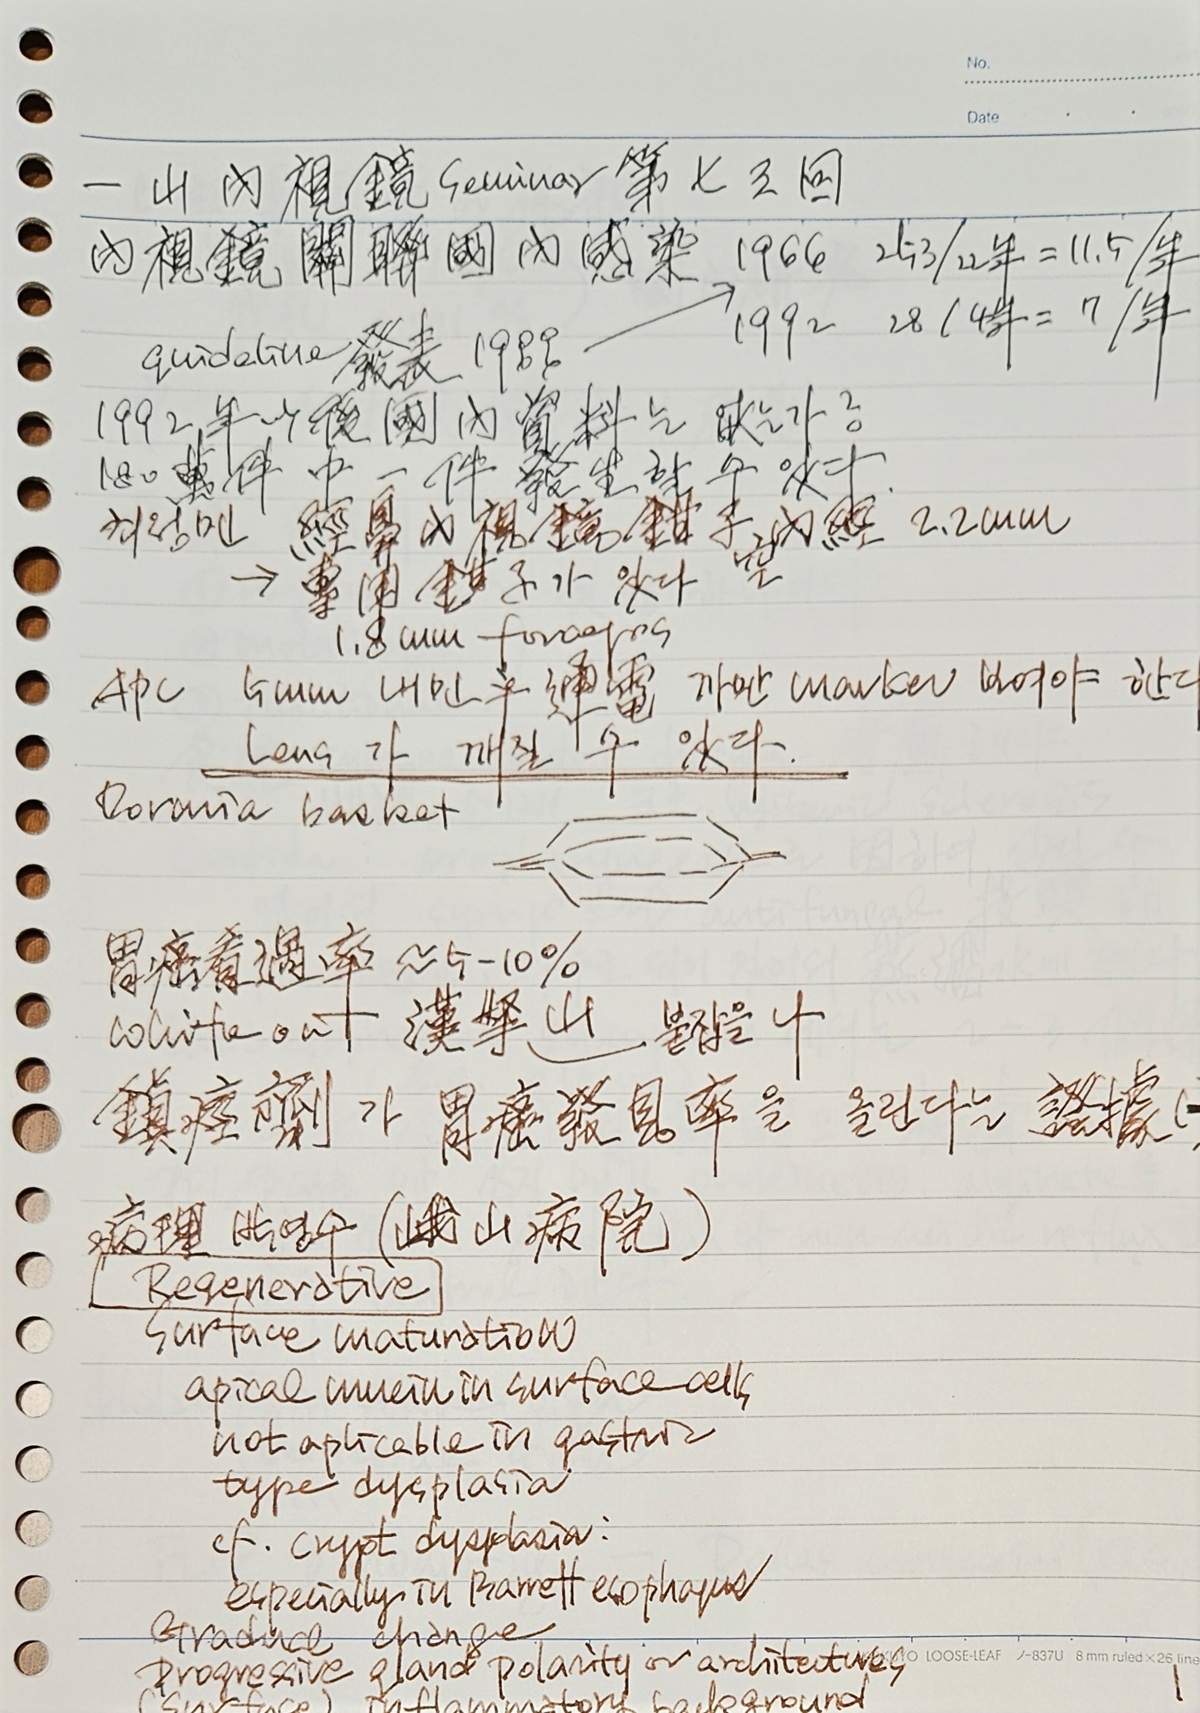 No.
Date
一山內視鏡 Seminar 第七三回
內視鏡關聯國內感染 1966 253/22年 = 11.5/年
1992 28/4年 = 7/年
guideline 發表 1988
1992年以後 國內資料는 없는가?
180萬件 中 一件 發生할 수 있다.
經鼻內視鏡 鉗子 內經 2.2mm
→ 專用鉗子가 있다
1.8mm forceps
APC 5mm 내민후 通電 까만 marker 보여야 한다
Lens가 깨질 수 있다.
Dormia basket
胃癌看過率 ≈ 5-10%
white out 漢拏山
鎭痙劑가 胃癌發見率을 올린다는 證據
病理 박영수 (峨山病院)
Regenerative
surface maturation
apical mucin in surface cells
not aplicable in gastric
type dysplasia
cf. crypt dysplasia:
especially in Barrett esophagus
Gradual change
Progressive gland polarity or architectures
KOKUYO LOOSE-LEAF ノ-837U 8 mm ruled×26 line
(surface) inflammatory background